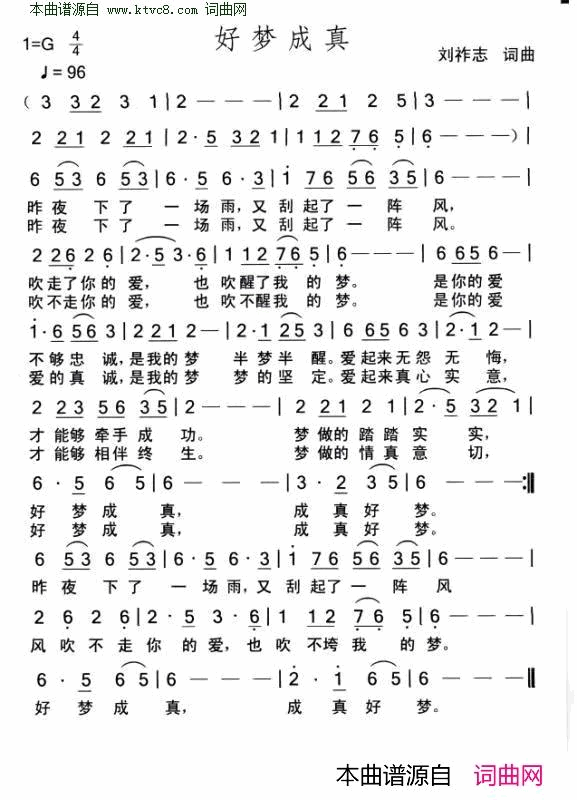 本曲谱源自
www.ktvc8.com 词曲网
1=G 4/4 好梦成真 刘祚志 词曲
♩=96
( 3 32 3 1 | 2 — — — | 2 221 2 5 | 3 — — — |
2 221 2 21 | 2 · 5 321 | 1 1276 5 | 6 — — — ) |
6 53 6 53 | 6 · 5 6 · 3 | 1 76 56 35 | 6 — — — |
昨夜下了一场雨,又刮起了一阵风,
昨夜下了一场雨,又刮起了一阵风,
2 226 2 6 | 2 · 5 3 · 6 | 1 12 76 5 | 6 — — — | 6 656 6 |
吹走了你的爱, 也吹醒了我的梦。 是你的爱
吹不走你的爱, 也吹不醒我的梦。 是你的爱
1 · 6 56 3 | 2 221 2 — | 2 · 1 25 3 | 6 656 6 3 | 2 · 1 2 — |
不够忠诚,是我的梦 半梦半醒。爱起来无怨无悔,
爱的真诚,是我的梦 梦的坚定。爱起来真心实意,
2 23 56 35 | 2 — — — | 2 221 2 1 | 2 · 5 32 1 |
才能够牵手成功。 梦做的踏踏实实,
才能够相伴终生。 梦做的情真意切,
6 · 5 6 5 | 6 — — — | 3 · 2 35 | 6 — — — :‖
好梦成真, 成真好梦。
好梦成真, 成真好梦。
6 53 6 53 | 6 · 5 6 · 3 | 1 76 56 35 | 6 — — — |
昨夜下了一场雨,又刮起了一阵风
2 6 2 6 | 2 · 5 3 · 6 | 1 12 76 5 | 6 — — — |
风吹不走你的爱,也吹不垮我的梦。
6 · 5 6 5 | 6 — — — | 2 · 1 65 | 6 — — — ‖
好梦成真, 成真好梦。
本曲谱源自 词曲网